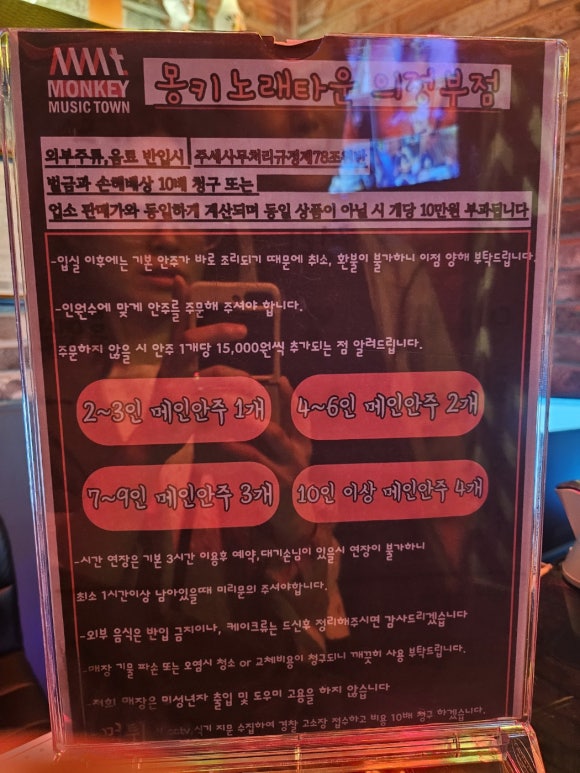 MMt
MONKEY
MUSIC TOWN
몽키노래타운 의정부점
외부주류,음료 반입시 주세사무처리규정제78조위반
벌금과 손해배상 10배 청구 또는
업소 판매가와 동일하게 계산되며 동일 상품이 아닐 시 개당 10만원 부과됩니다
-입실 이후에는 기본 안주가 바로 조리되기 때문에 취소, 환불이 불가하니 이점 양해 부탁드립니다.
-인원수에 맞게 안주를 주문해 주셔야 합니다.
주문하지 않을 시 안주 1개당 15,000원씩 추가되는 점 알려드립니다.
2~3인 메인안주 1개
4~6인 메인안주 2개
7~9인 메인안주 3개
10인 이상 메인안주 4개
-시간 연장은 기본 3시간 이용후 예약,대기손님이 있을시 연장이 불가하니
최소 1시간이상 남아있을때 미리문의 주셔야합니다.
-외부 음식은 반입 금지이나, 케이크류는 드신후 정리해주시면 감사드리겠습니다
-매장 기물 파손 또는 오염시 청소 or 교체비용이 청구되니 깨끗히 사용 부탁드립니다.
-저희 매장은 미성년자 출입 및 도우미 고용을 하지 않습니다
먹튀 시 cctv 식기 지문 수집하여 경찰 고소장 접수하고 비용 10배 청구 하겠습니다.